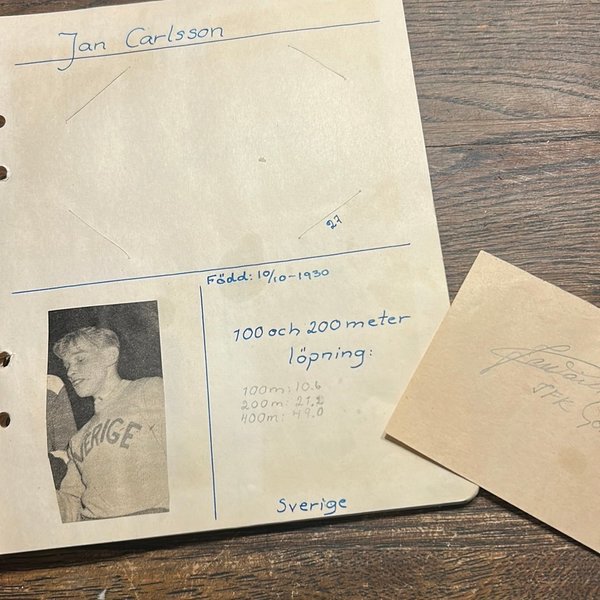 Jan Carlsson
27
Född: 10/10-1930
100 och 200 meter
löpning:
100m: 10.6
200m: 21.2
400m: 49.0
VERIGE
Sverige